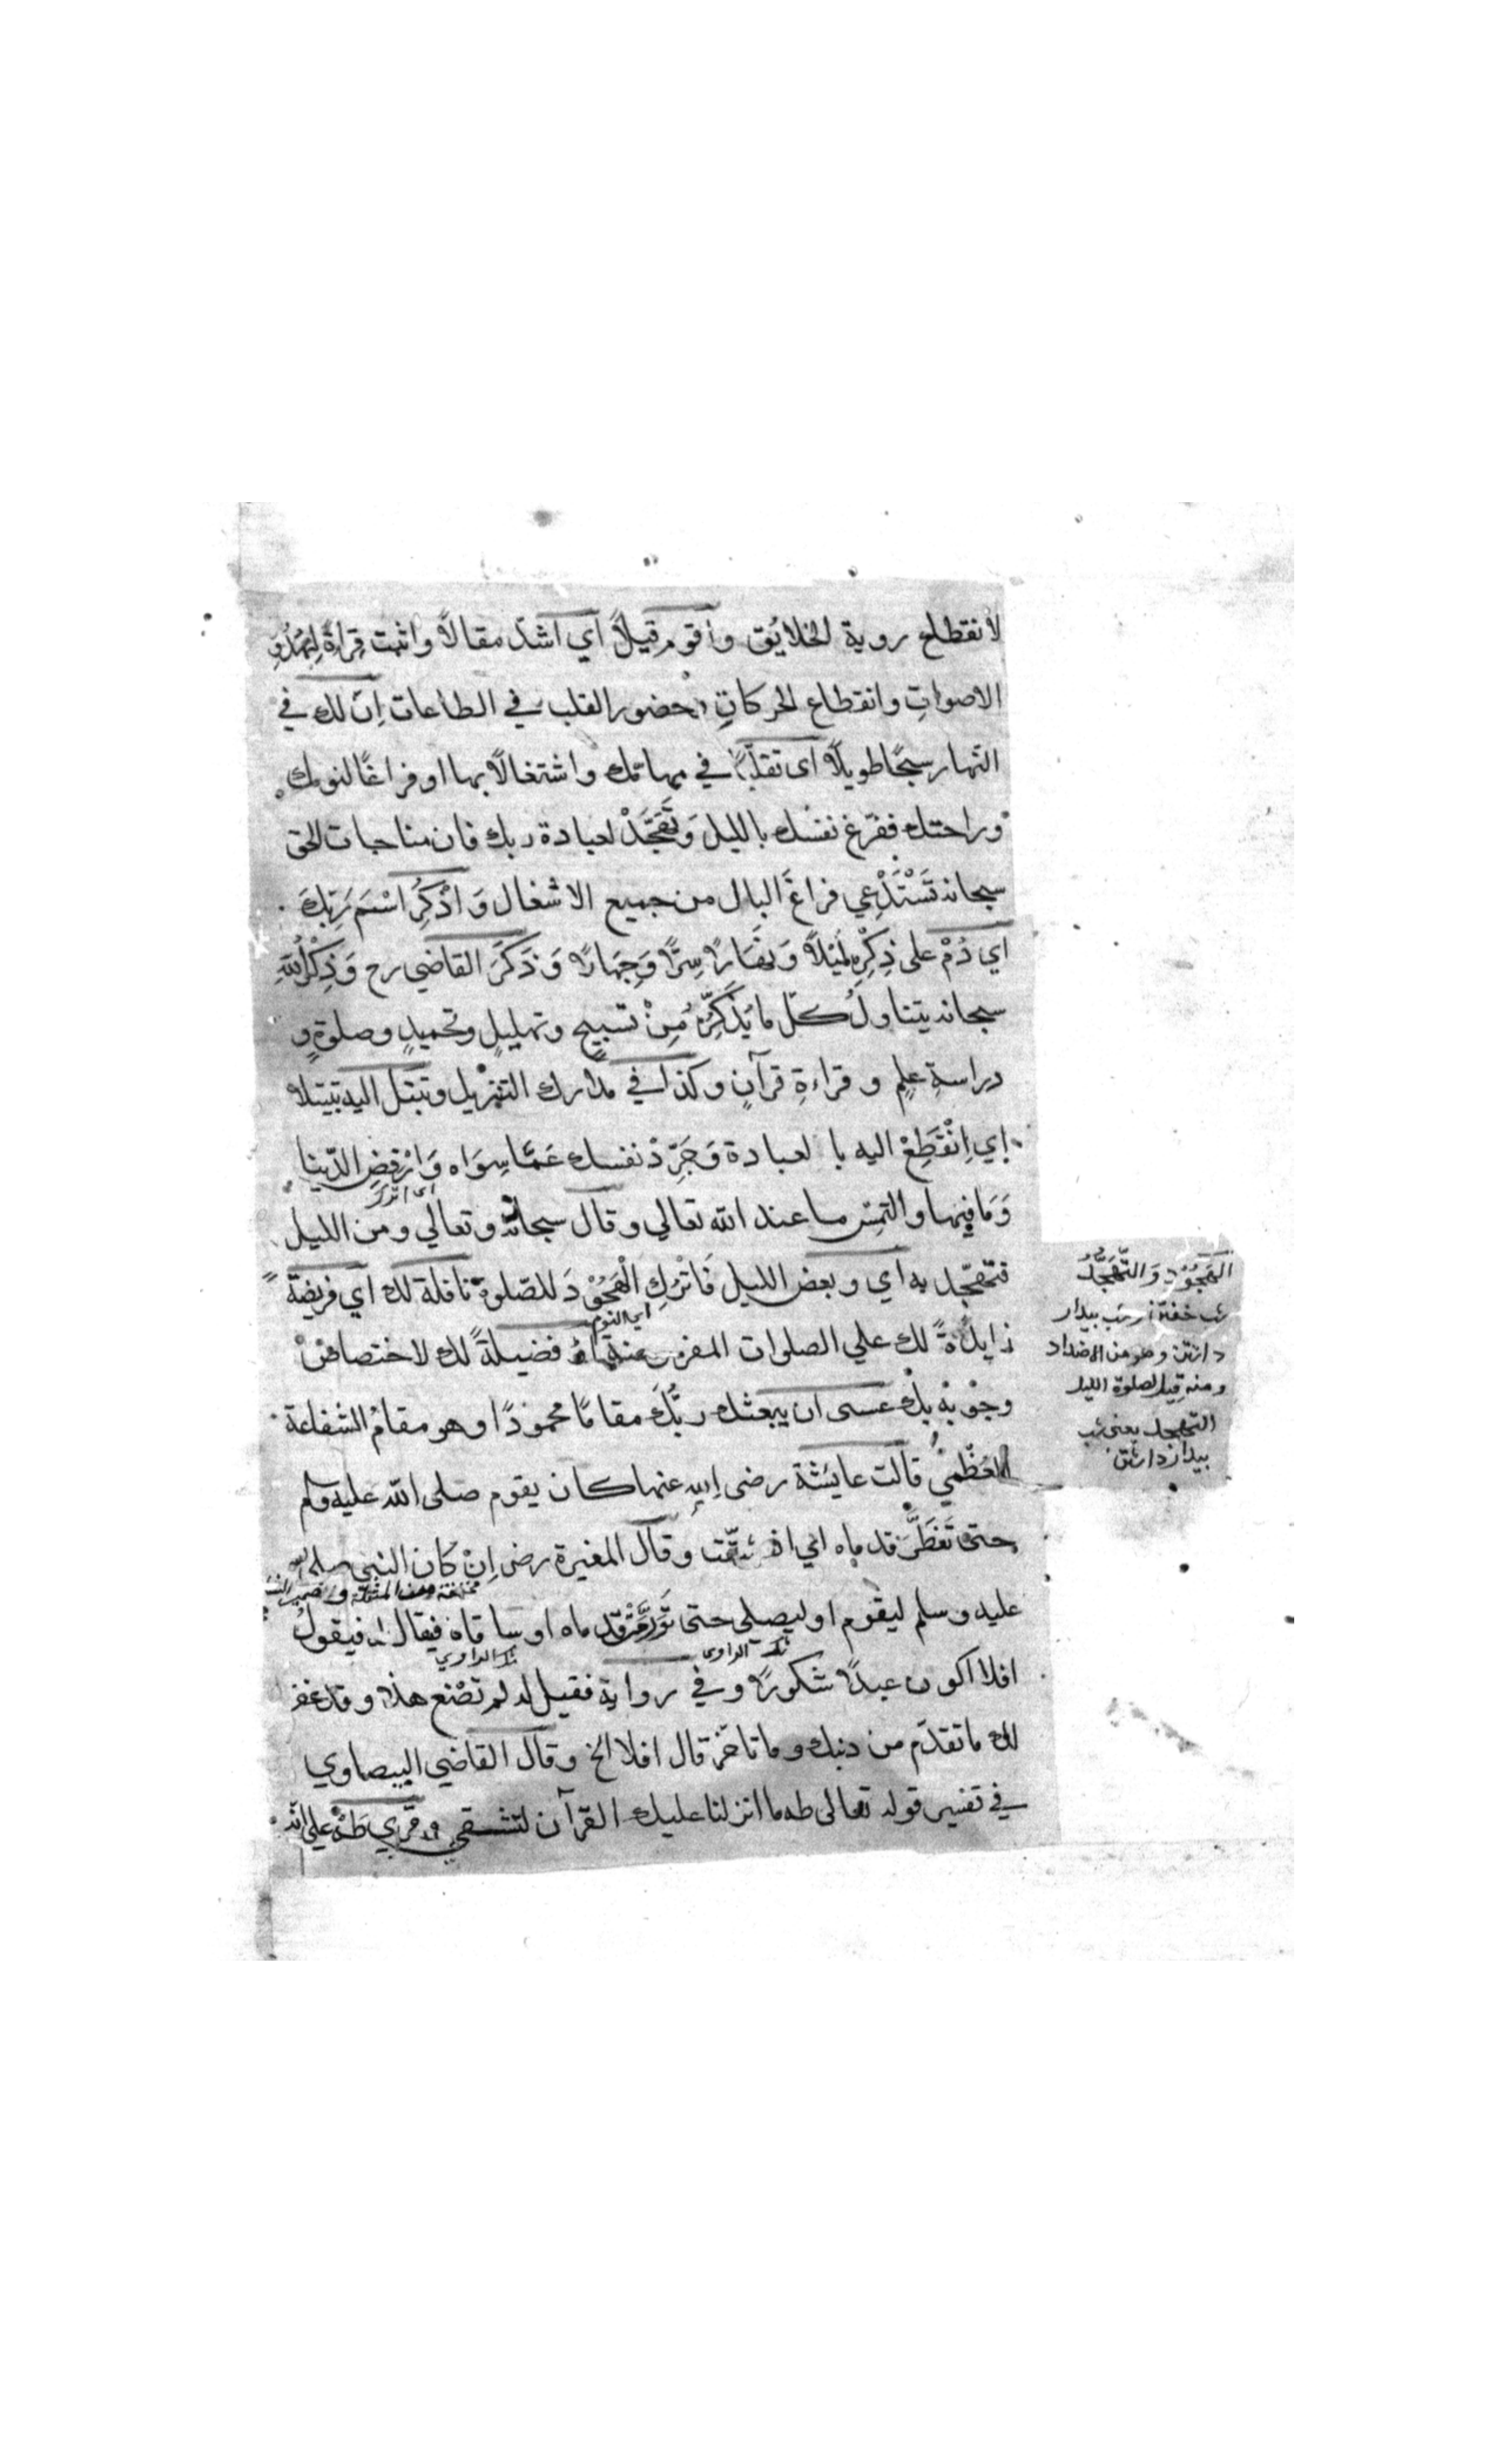 لانقطاع روية الخلائق وأقوم قيلاً اي اشدّ مقالاً واثبت قِراءةً لِهُدُوِّ
الاصواتِ وانقطاع الحركاتِ وحضور القلب في الطاعات اِنّ لك في
النّهار سبحًا طويلاً اى تقلّبًا في مهماتك واشتغالاً بها او فراغًا لنومك
وراحتك ففرّغ نفسَك بالليل وَتَهَجَّدْ لعبادة ربك فان مناجات الحق
سبحانه تَسْتَدْعِي فراغَ البال من جميع الاشغال وَاذْكُرِ اسْمَ رَبِّكَ
اي دُمْ على ذِكْرِهِ لَيْلاً وَنَهَارًا سِرًّا وَجِهَارًا وَذَكَرَ القاضي رح وَذِكْرُ اللهِ
سبحانه يتناولُ كلّ ما يُذَكِّرُهُ مِنْ تسبيحٍ وتهليلٍ وتحميدٍ وصلوةٍ و
دراسةِ علمٍ وقراءةِ قرآنٍ وكذا في مدارك التنزيل وتبتّل اليه تبتيلا
اي اِنْقَطِعْ اليه بالعبادة وَجَرِّدْ نفسك عَمَّا سِوَاه وَارْفضِ الدّنيا
اى اترك
وَمَا فيها والتمِس ما عند الله تعالي وقال سبحانه وتعالي ومن الليل
فتهجّد به اي وبعض الليل فَاتْرُكِ الْهُجُوْدَ للصّلوة نافلة لك اي فريضةً
اي النوم
زايدةً لك علي الصلوات المفروضة او فضيلةً لك لاختصاص
وجوبه بك عسى ان يبعثك ربُّك مقامًا محمودًا وهو مقامُ الشفاعة
العُظْمي قالت عايشة رضى الله عنها كان يقوم صلى الله عليه وسلم
حتى تَفَطَّرَ قدماه اي انشقّت وقال المغيرة رضى اِنْ كان النبي صلى الله
عليه وسلم ليقوم او ليصلى حتى تَوَرَّمَتْ قدماه او ساقاه فيقال له فيقولُ
شك الراوي شك الراوي
افلا اكون عبدًا شكورًا وفي رواية فقيل له لم تصْنع هذا وقد غفر
لك ما تقدّم من ذنبك وما تاخّر قال افلا الخ وقال القاضي البيضاوي
في تفسير قوله تعالى طه ما انزلنا عليك القرآن لتشقي وقري طَهْ علي انّه
الهُجُوْد وَالتَّهَجُّدُ
شب خفتن وشب بيدار
داشتن وهو من الاضداد
ومنه قيل لصلوة الليل
التهجد يعنى شب
بيدار داشتن